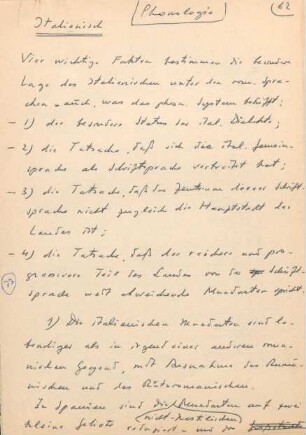 [Phonologie]
62
Italienisch
Vier wichtige Fakten bestimmen die besondere
Lage des Italienischen unter den rom. Spra-
chen – auch, was das phon. System betrifft:
– 1) der besondere Status der ital. Dialekte;
– 2) die Tatsache, daß sich die ital. Gemein-
sprache als Schriftsprache verbreitet hat;
– 3) die Tatsache, daß das Zentrum dieser Schrift-
sprache nicht zugleich die Hauptstadt des
Landes ist;
– 4) die Tatsache, daß der reichere und pro-
gressivere Teil des Landes von der Schrift-
sprache weit abweichende Mundarten spricht.
1) Die italienischen Mundarten sind le-
bendiger als in irgend einer anderen roma-
nischen Gegend, mit Ausnahme des Rumä-
nischen und des Rätoromanischen.
In Spanien sind die Mundarten auf zwei
(nicht-kastilischen)
kleine Gebiete reduziert – und